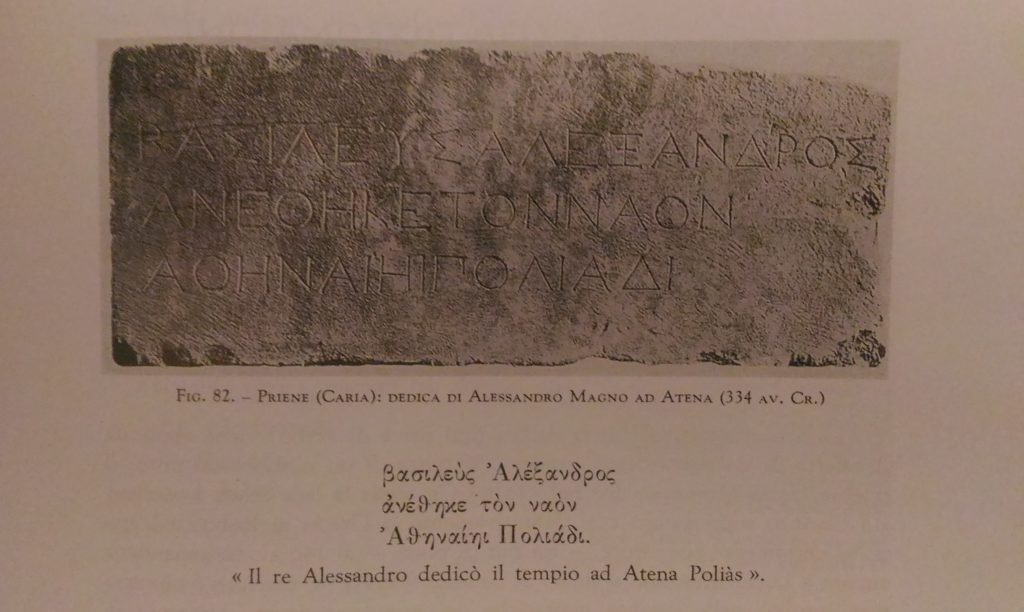 ΒΑΣΙΛΕΥΣΑΛΕΞΑΝΔΡΟΣ
ΑΝΕΘΗΚΕΤΟΝΝΑΟΝ
ΑΘΗΝΑΙΗΙΠΟΛΙΑΔΙ
Fig. 82. – Priene (Caria): dedica di Alessandro Magno ad Atena (334 av. Cr.)
βασιλεὺς Ἀλέξανδρος
ἀνέθηκε τὸν ναὸν
Ἀθηναίηι Πολιάδι.
« Il re Alessandro dedicò il tempio ad Atena Poliàs ».